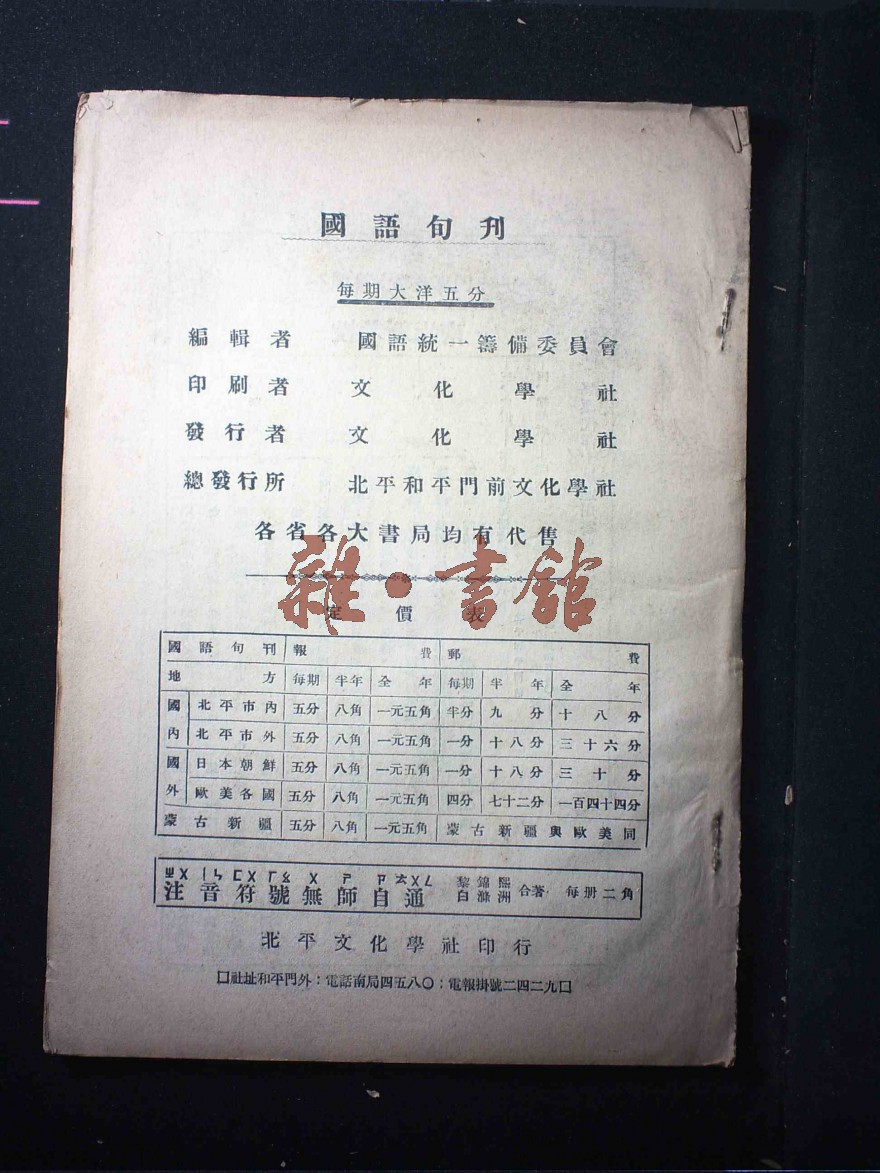 國語旬刊
每期大洋五分
編輯者 國語統一籌備委員會
印刷者 文化學社
發行者 文化學社
總發行所 北平和平門前文化學社
各省各大書局均有代售
雜·書館
定價表
國語旬刊 報費 郵費
地方 每期 半年 全年 每期 半年 全年
國內 北平市內 五分 八角 一元五角 半分 九分 十八分
北平市外 五分 八角 一元五角 一分 十八分 三十六分
國外 日本朝鮮 五分 八角 一元五角 一分 十八分 三十分
歐美各國 五分 八角 一元五角 四分 七十二分 一百四十四分
蒙古新疆 五分 八角 一元五角 蒙古新疆與歐美同
ㄓㄨ ㄧㄣ ㄈㄨ ㄏㄠ ㄨ ㄕ ㄗ ㄊㄨㄥ
注音符號無師自通 黎錦熙 白滌洲 合著· 每册二角
北平文化學社印行
囗社址和平門外：電話南局四五八〇：電報掛號二四二九囗